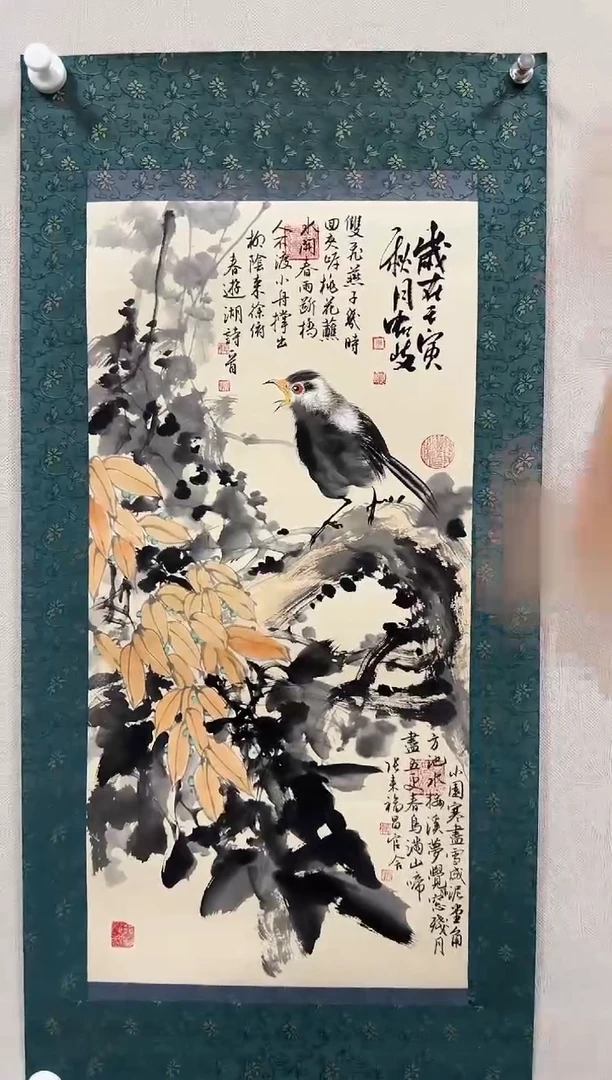 歲在壬寅
秋月
雙飛燕子幾時
回夾岸桃花蘸
水開春雨斷橋
人不渡小舟撐出
柳陰來徐俯
春遊湖詩首
小園寒盡雪成泥堂角
方池水接溪夢覺窓殘月
盡五更春鳥滿山啼
張耒福昌官舍